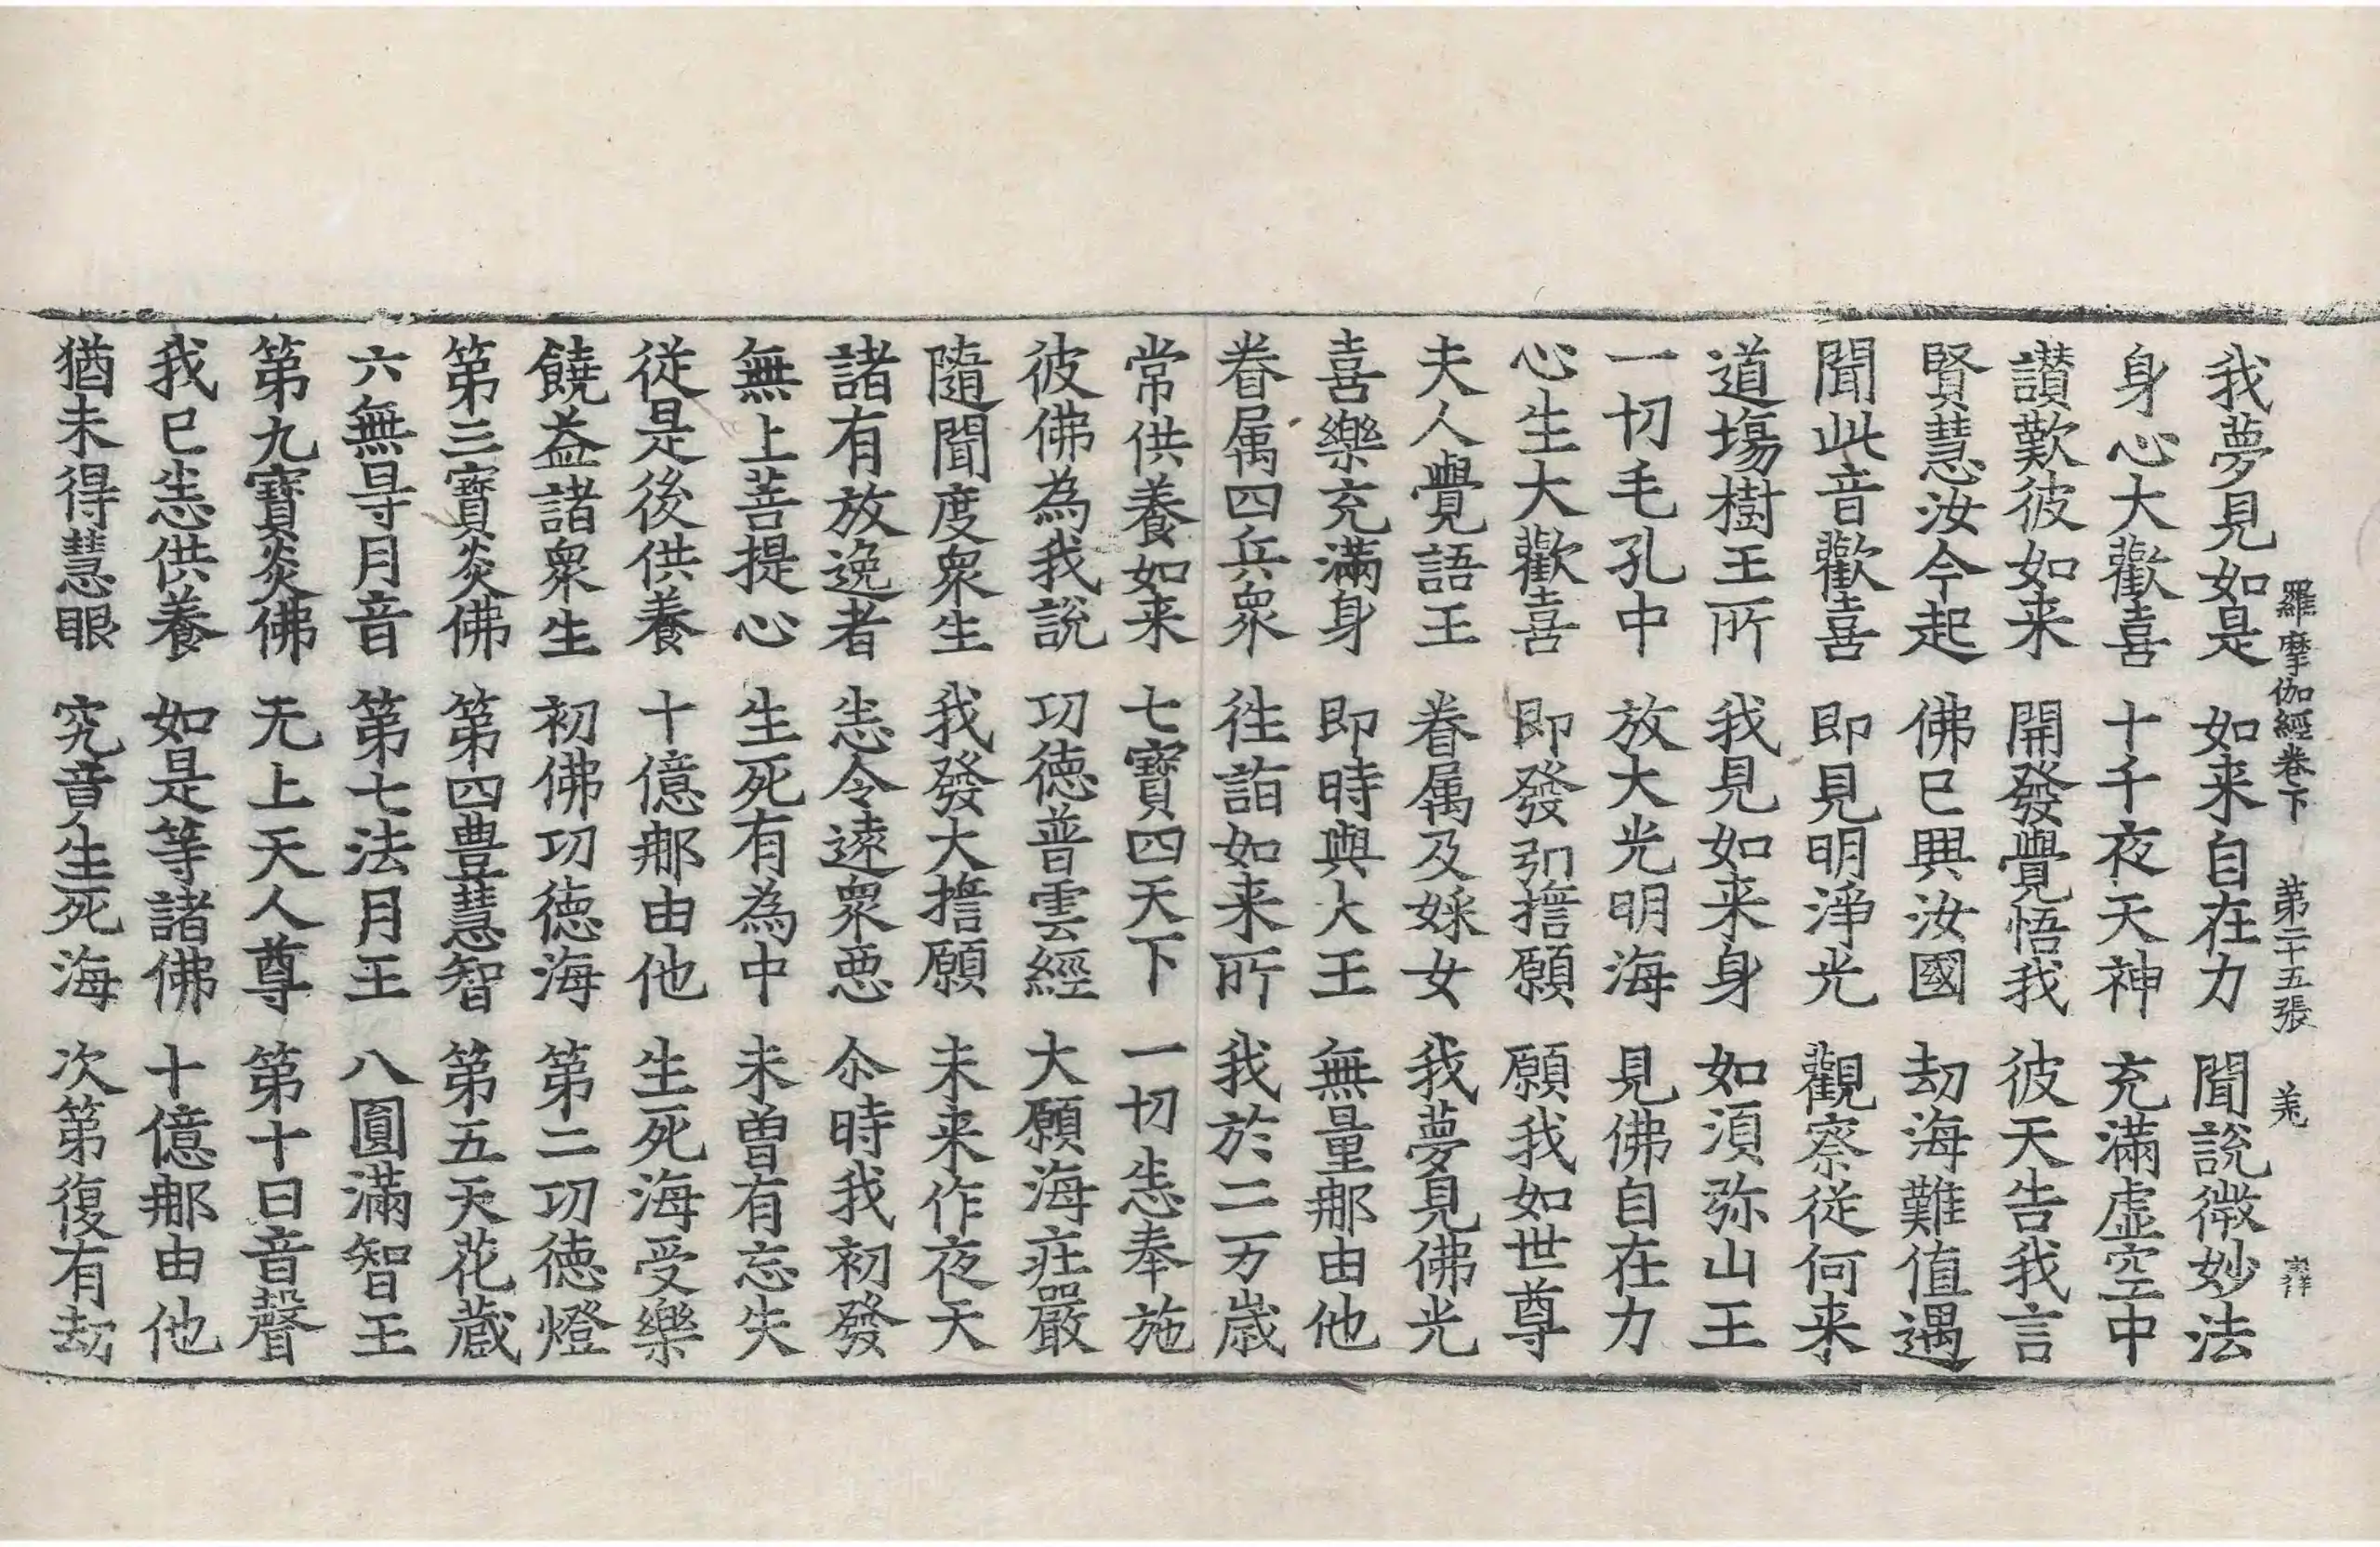 羅摩伽經卷下 第二十五張 羌 宗祥
我夢見如是 如来自在力 聞說微妙法
身心大歡喜 十千夜天神 充滿虛空中
讃歎彼如来 開發覺悟我 彼天告我言
賢慧汝今起 佛已興汝國 劫海難值遇
聞此音歡喜 即見明淨光 觀察從何来
道場樹王所 我見如来身 如湏弥山王
一切毛孔中 放大光明海 見佛自在力
心生大歡喜 即發弘擔願 願我如世尊
夫人覺語王 眷属及婇女 我夢見佛光
喜樂充滿身 即時與大王 無量那由他
眷属四兵衆 往詣如来所 我於二万歲
常供養如来 七寶四天下 一切悉奉施
彼佛為我說 功德普雲經 大願海莊嚴
隨聞度衆生 我發大擔願 未来作夜天
諸有放逸者 悉令遠衆惡 尒時我初發
無上菩提心 生死有為中 未曽有忘失
従是後供養 十億那由他 生死海受樂
饒益諸衆生 初佛功德海 第二功德燈
第三寶炎佛 第四豊慧智 第五天花蔵
六無㝵月音 第七法月王 八圓滿智王
第九寶炎佛 无上天人尊 第十日音聲
我已悉供養 如是等諸佛 十億那由他
猶未得慧眼 究竟生死海 次第復有劫